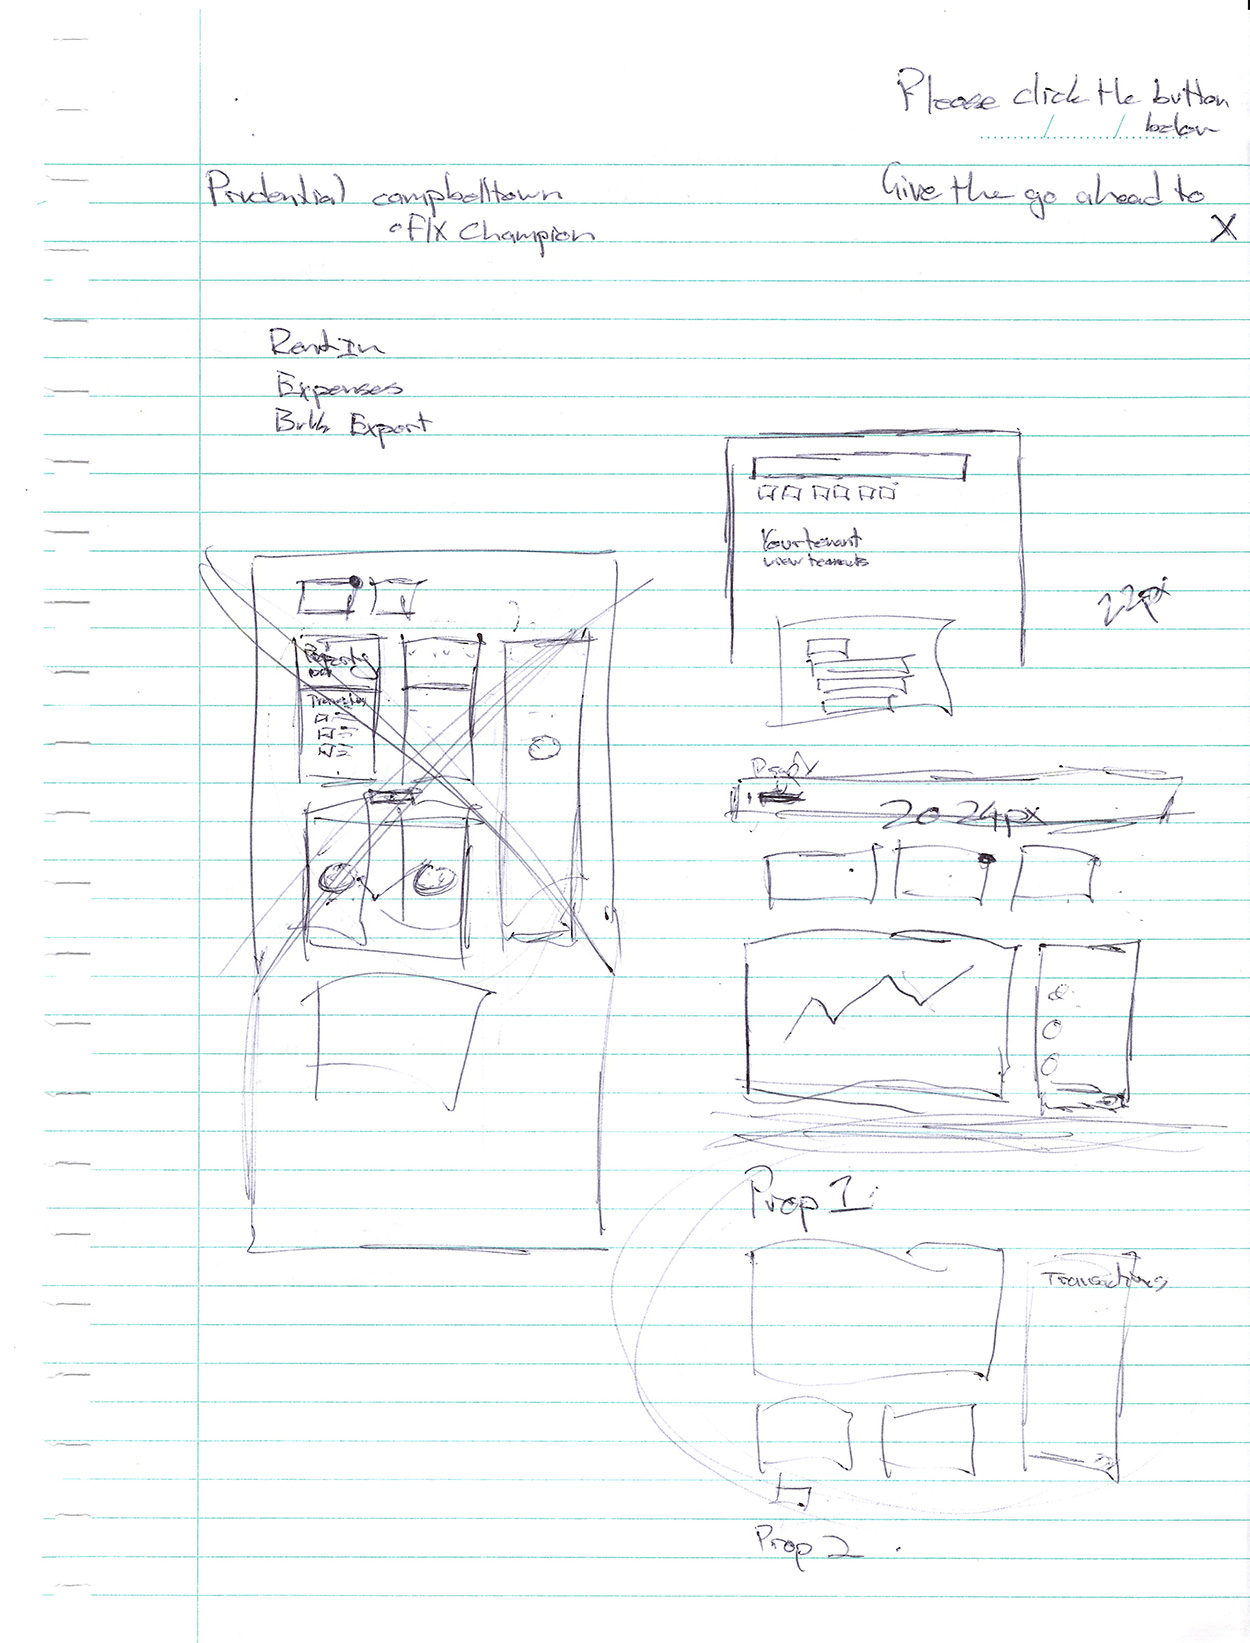 Please click the button
below
Prudential campbelltown
Give the go ahead to
X
Champion
Rent In
Expenses
Bulk Export
Your tenant
view tenants
22px
Property
Transactions
20 24px
Prop 1
Transactions
Prop 2